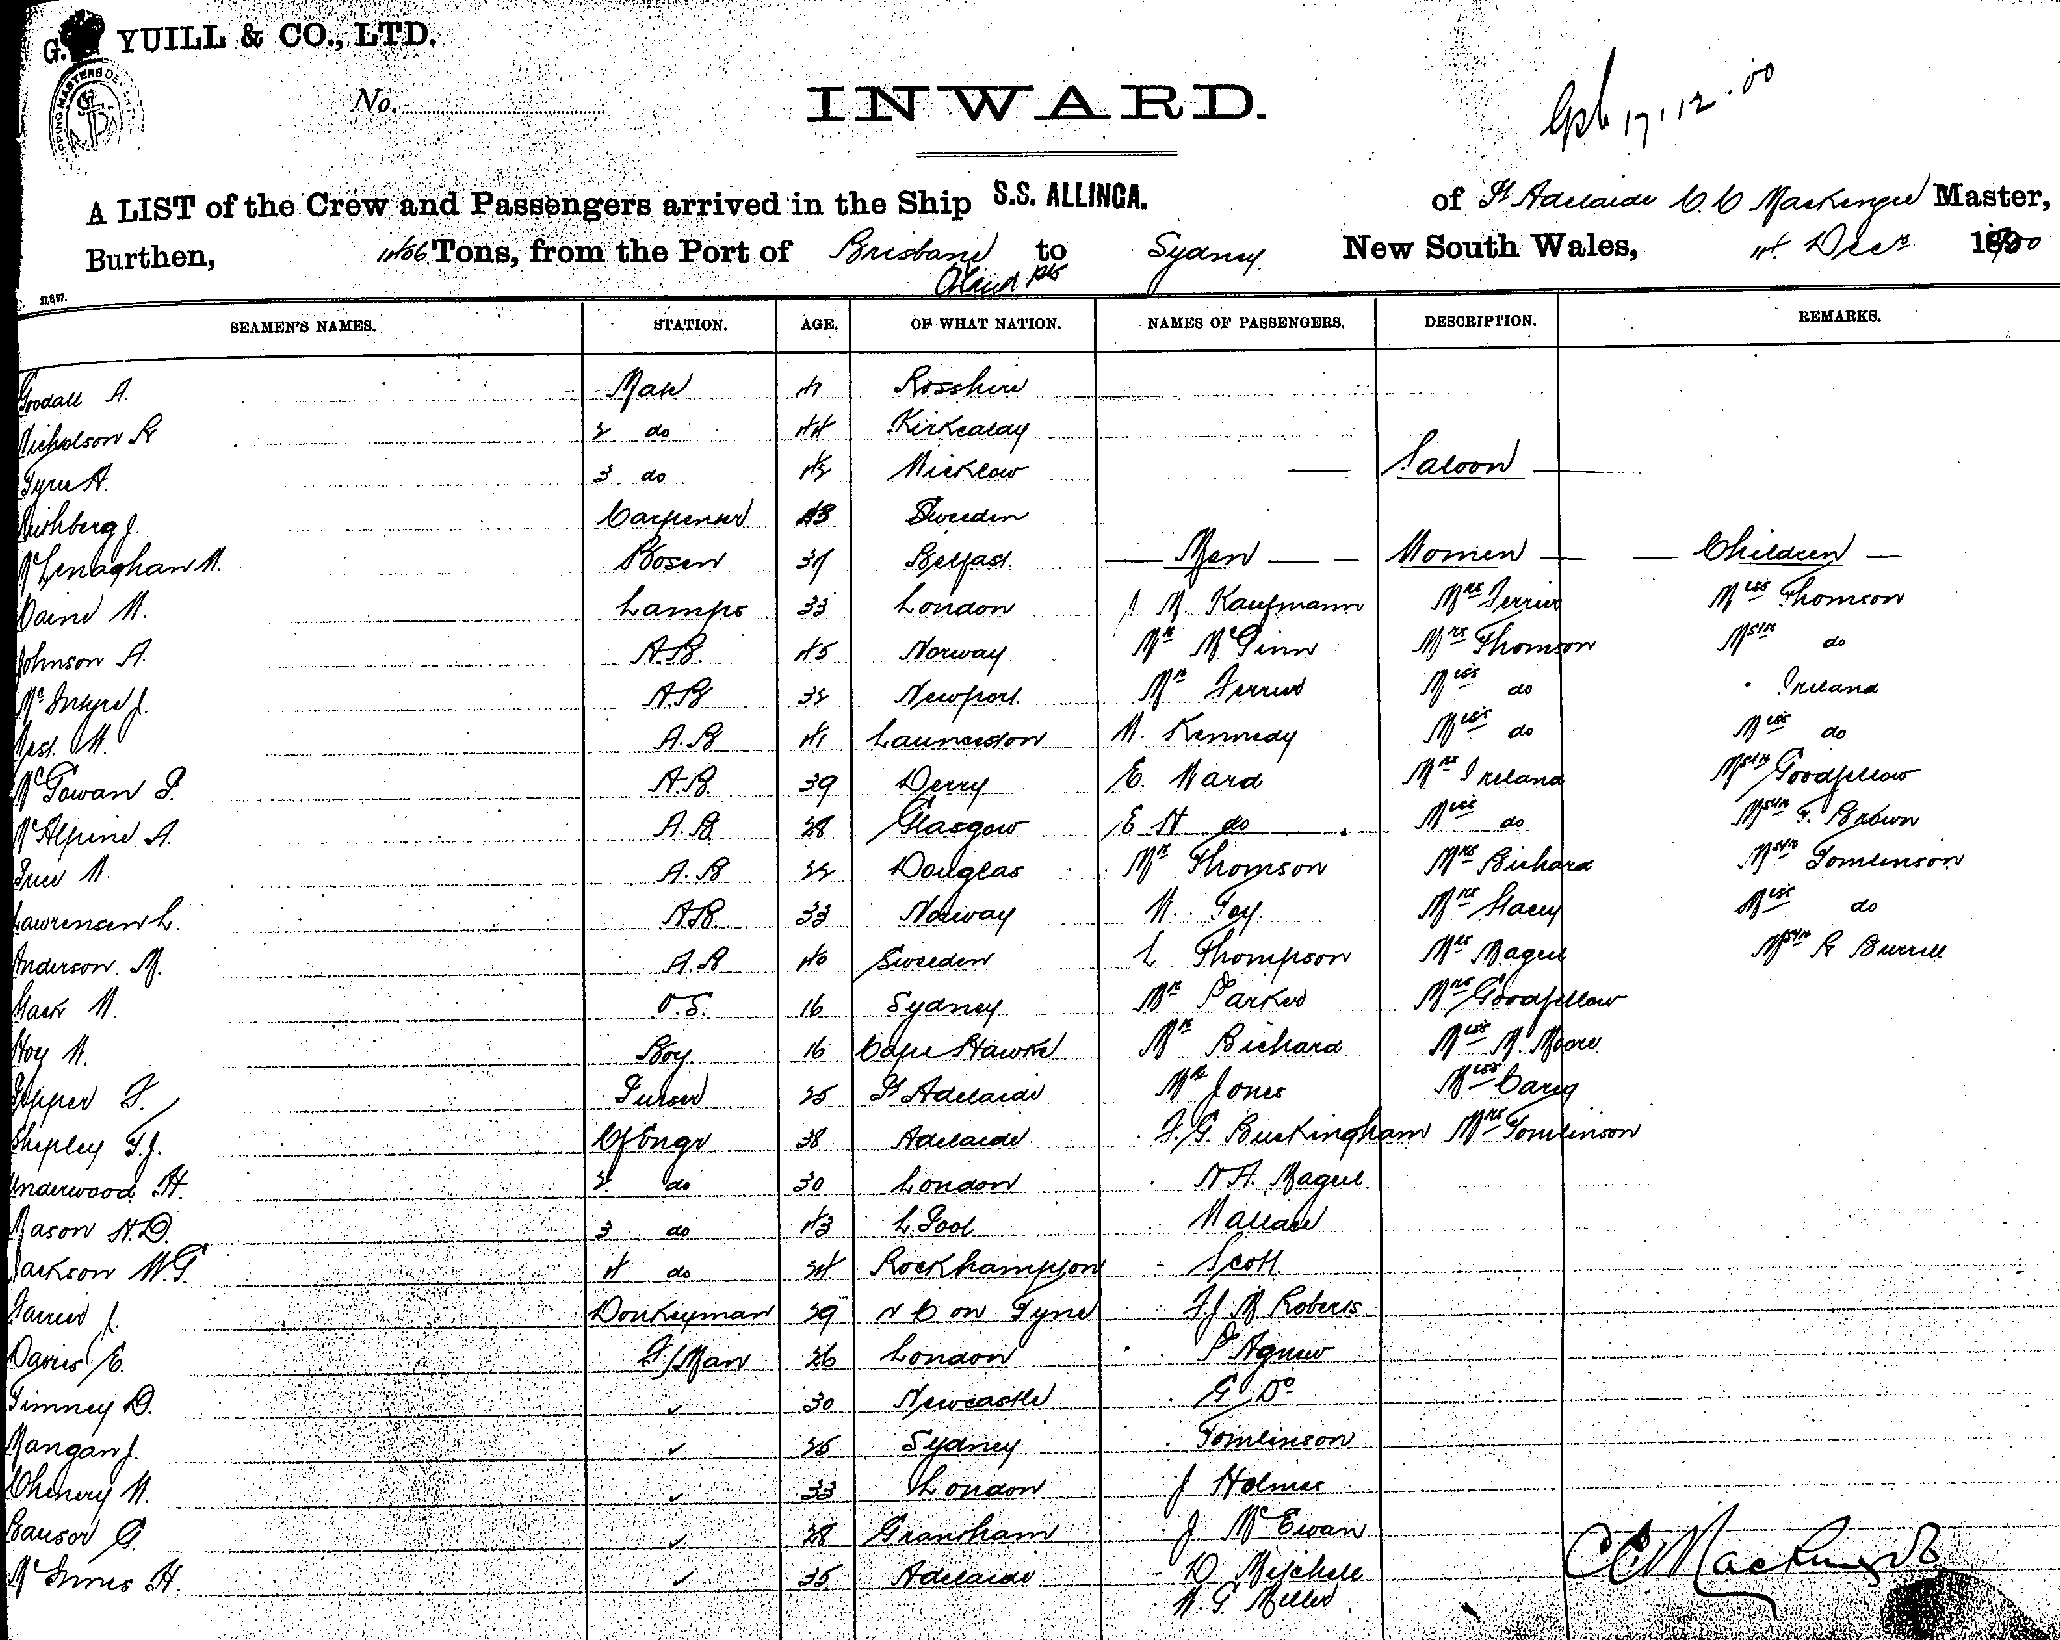 YUILL & CO., LTD.
No.
INWARD.
17.12.00
A LIST of the Crew and Passengers arrived in the Ship S.S. ALLINGA. of Pt Adelaide C. C Mackenzie Master,
Burthen, Tons, from the Port of Brisbane to Sydney New South Wales, Decr 1900
SEAMEN'S NAMES. STATION. AGE. OF WHAT NATION. NAMES OF PASSENGERS. DESCRIPTION. REMARKS.
Goodall A. Mate 41 Rosshire
Nicholson R 2 do 44 Kirkcalday
3 do 42 Wicklow Saloon
J. Carpenter Sweeden
McLenaghan W. Bosen Belfast Men Women Children
W. Lamps 33 London J M Kaufmann Mrs Ferrier Miss Thomson
Johnson A. A.B. 45 Norway Mr McGinn Mrs Thomson Mstr do
J. A.B 32 Newport Mr Ferrier Miss do Ireland
West W. A.B 41 Launceston W. Kennedy Miss do Miss do
McGowan P. A.B. 39 Derry E. Ward Mrs Ireland Mstr Goodfellow
McAlpine A. A.B 28 Glasgow E H do Miss do Mstr F. Brown
W. A.B 22 Douglas Mr Thomson Mrs Bichard Mstr Tomlinson
Lawrensen L. A.B. 33 Norway W. Foy Mrs Stacey Miss do
Anderson M. A.B 40 Sweeden L Thompson Mrs Magee Mstr R Burrell
W. O.S. 16 Sydney Mr Parker Mrs Goodfellow
Hoy W. Boy 16 Cape Hawke Mr Bichard Miss M. Moore
Pepper F. Purser 25 Pt Adelaide Mr Jones Miss Carey
Shepley T.J. Cf Engr 38 Adelaide F. G. Buckingham Mrs Tomlinson
Underwood H. 2 do 30 London W A. Magee
Mason H.D. 3 do 43 L Pool Wallace
Jackson W.G. 4 do 24 Rockhampton Scott
J. Donkeyman 29 N C on Tyne F.J M Roberts
Davies E. F/Man 26 London P Agnew
Timney D. ✓ 30 Newcastle G Do
Mangan J. ✓ 25 Sydney Tomlinson
Chenery W. ✓ 33 London J Holmes
G. ✓ 28 Grantham J McEwan
McInnes H. ✓ 35 Adelaide D Mitchell
W. G. Miller
C C Mackenzie